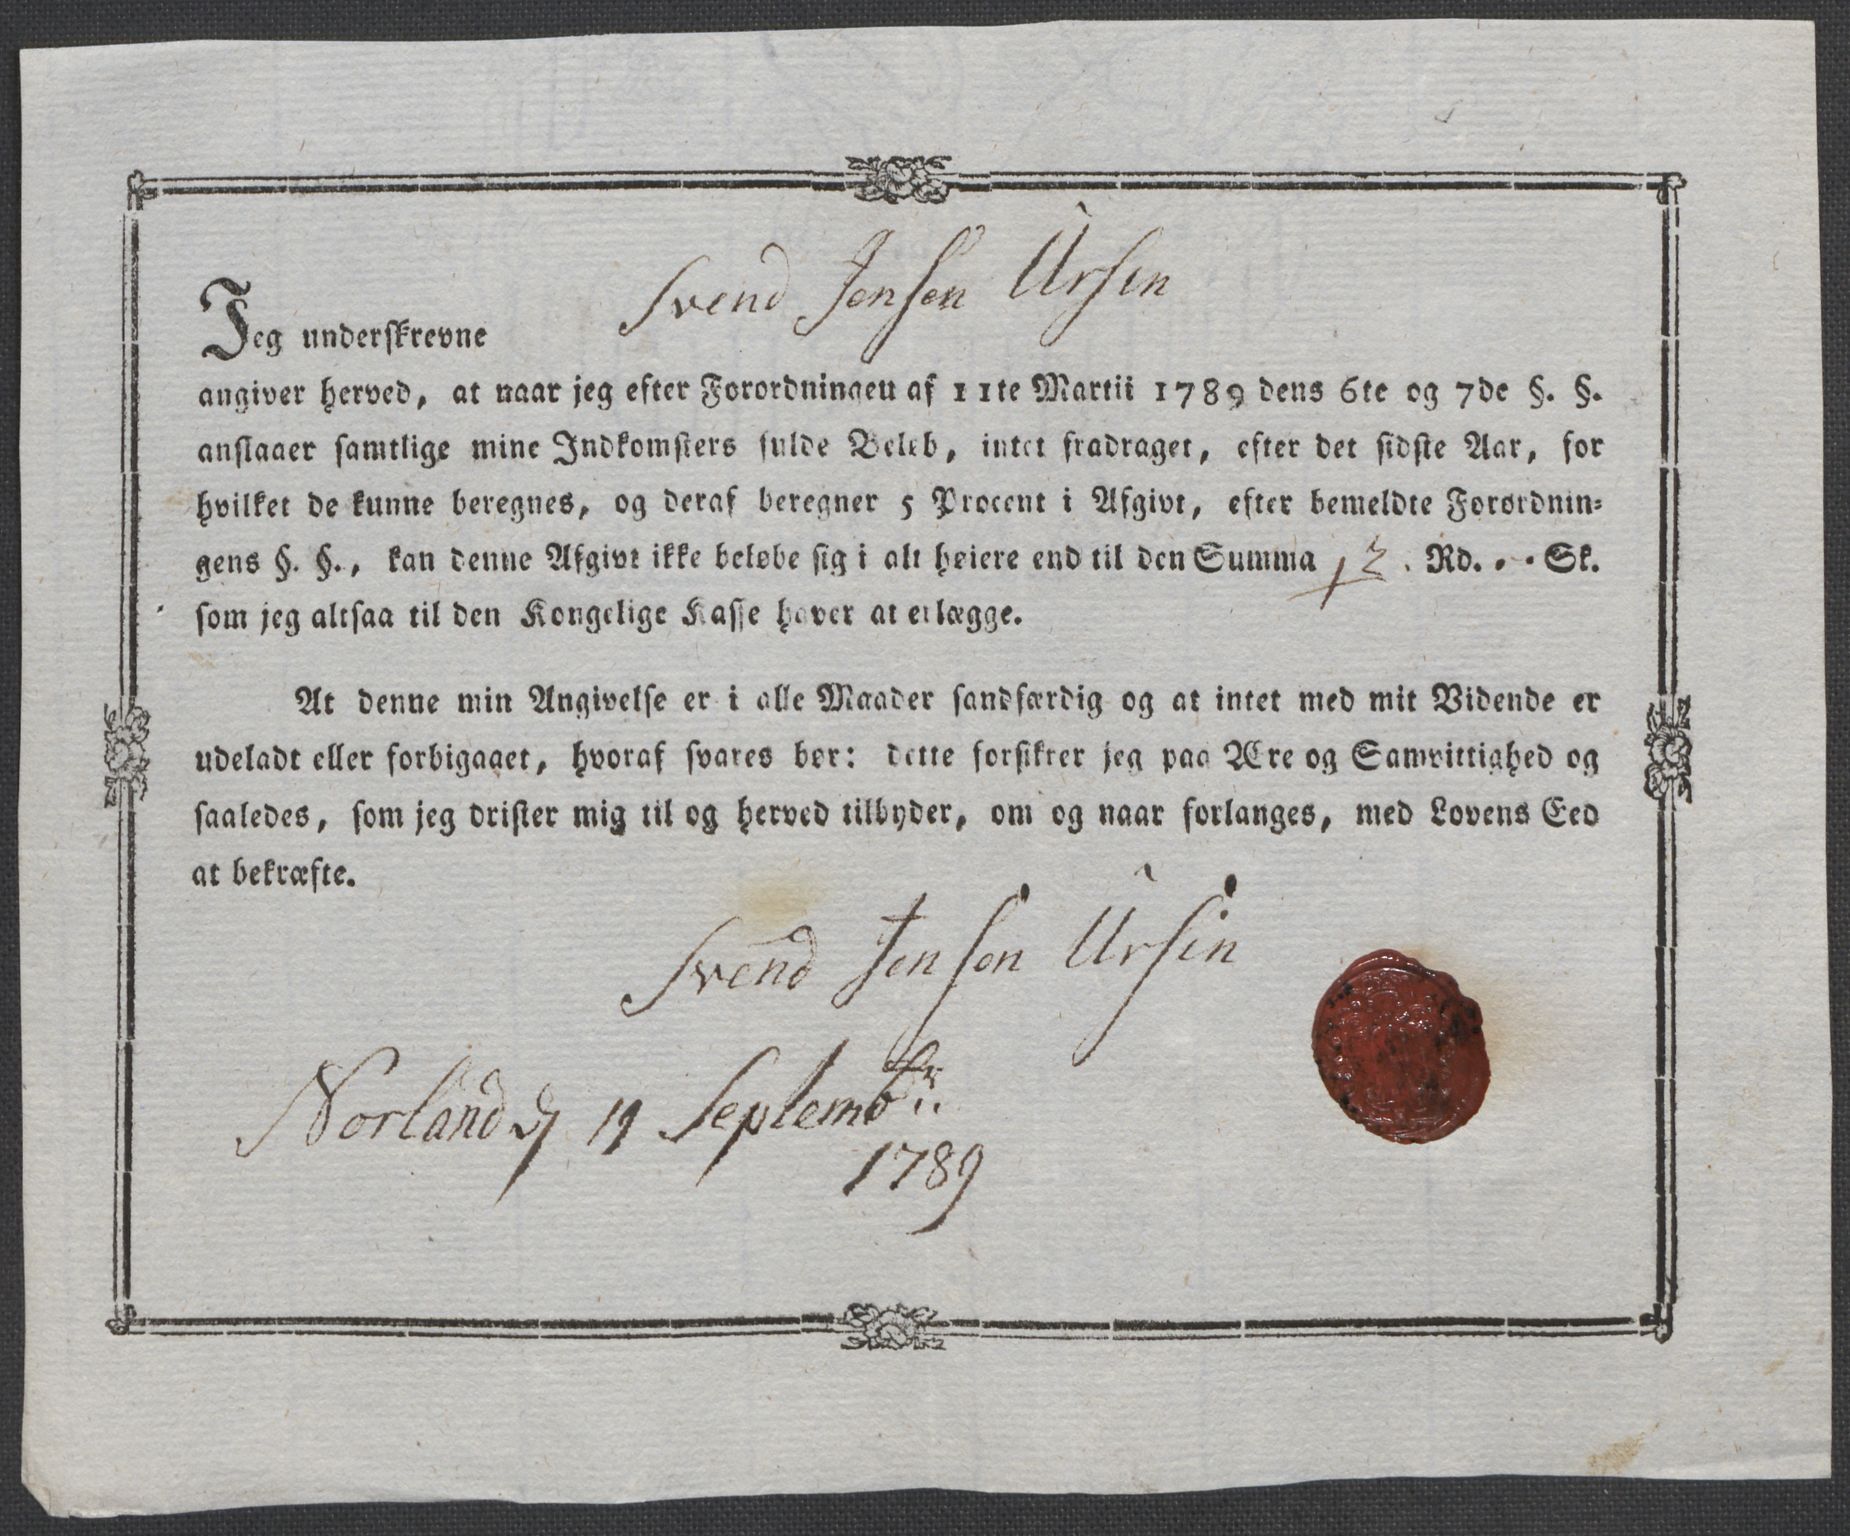 Svend Jensen Ursin
Jeg underskrevne
angiver herved, at naar jeg efter Forordningen af 11te Martii 1789 dens 6te og 7de §. §.
anslaaer samtlige mine Indkomsters fulde Beløb, intet fradraget, efter det sidste Aar, for
hvilket de kunne beregnes, og deraf beregner 5 Procent i Afgivt, efter bemeldte Forordnin=
gens §. §., kan denne Afgivt ikke beløbe sig i alt høiere end til den Summa 12. Rd. .. Sk.
som jeg altsaa til den Kongelige Kasse haver at erlægge.
At denne min Angivelse er i alle Maader sandfærdig og at intet med mit Vidende er
udeladt eller forbigaaet, hvoraf svares bør: dette forsikrer jeg paa Ære og Samvittighed og
saaledes, som jeg drister mig til og herved tilbyder, om og naar forlanges, med Lovens Eed
at bekræfte.
Svend Jensen Ursin
Norland d 19 Septembr:
1789